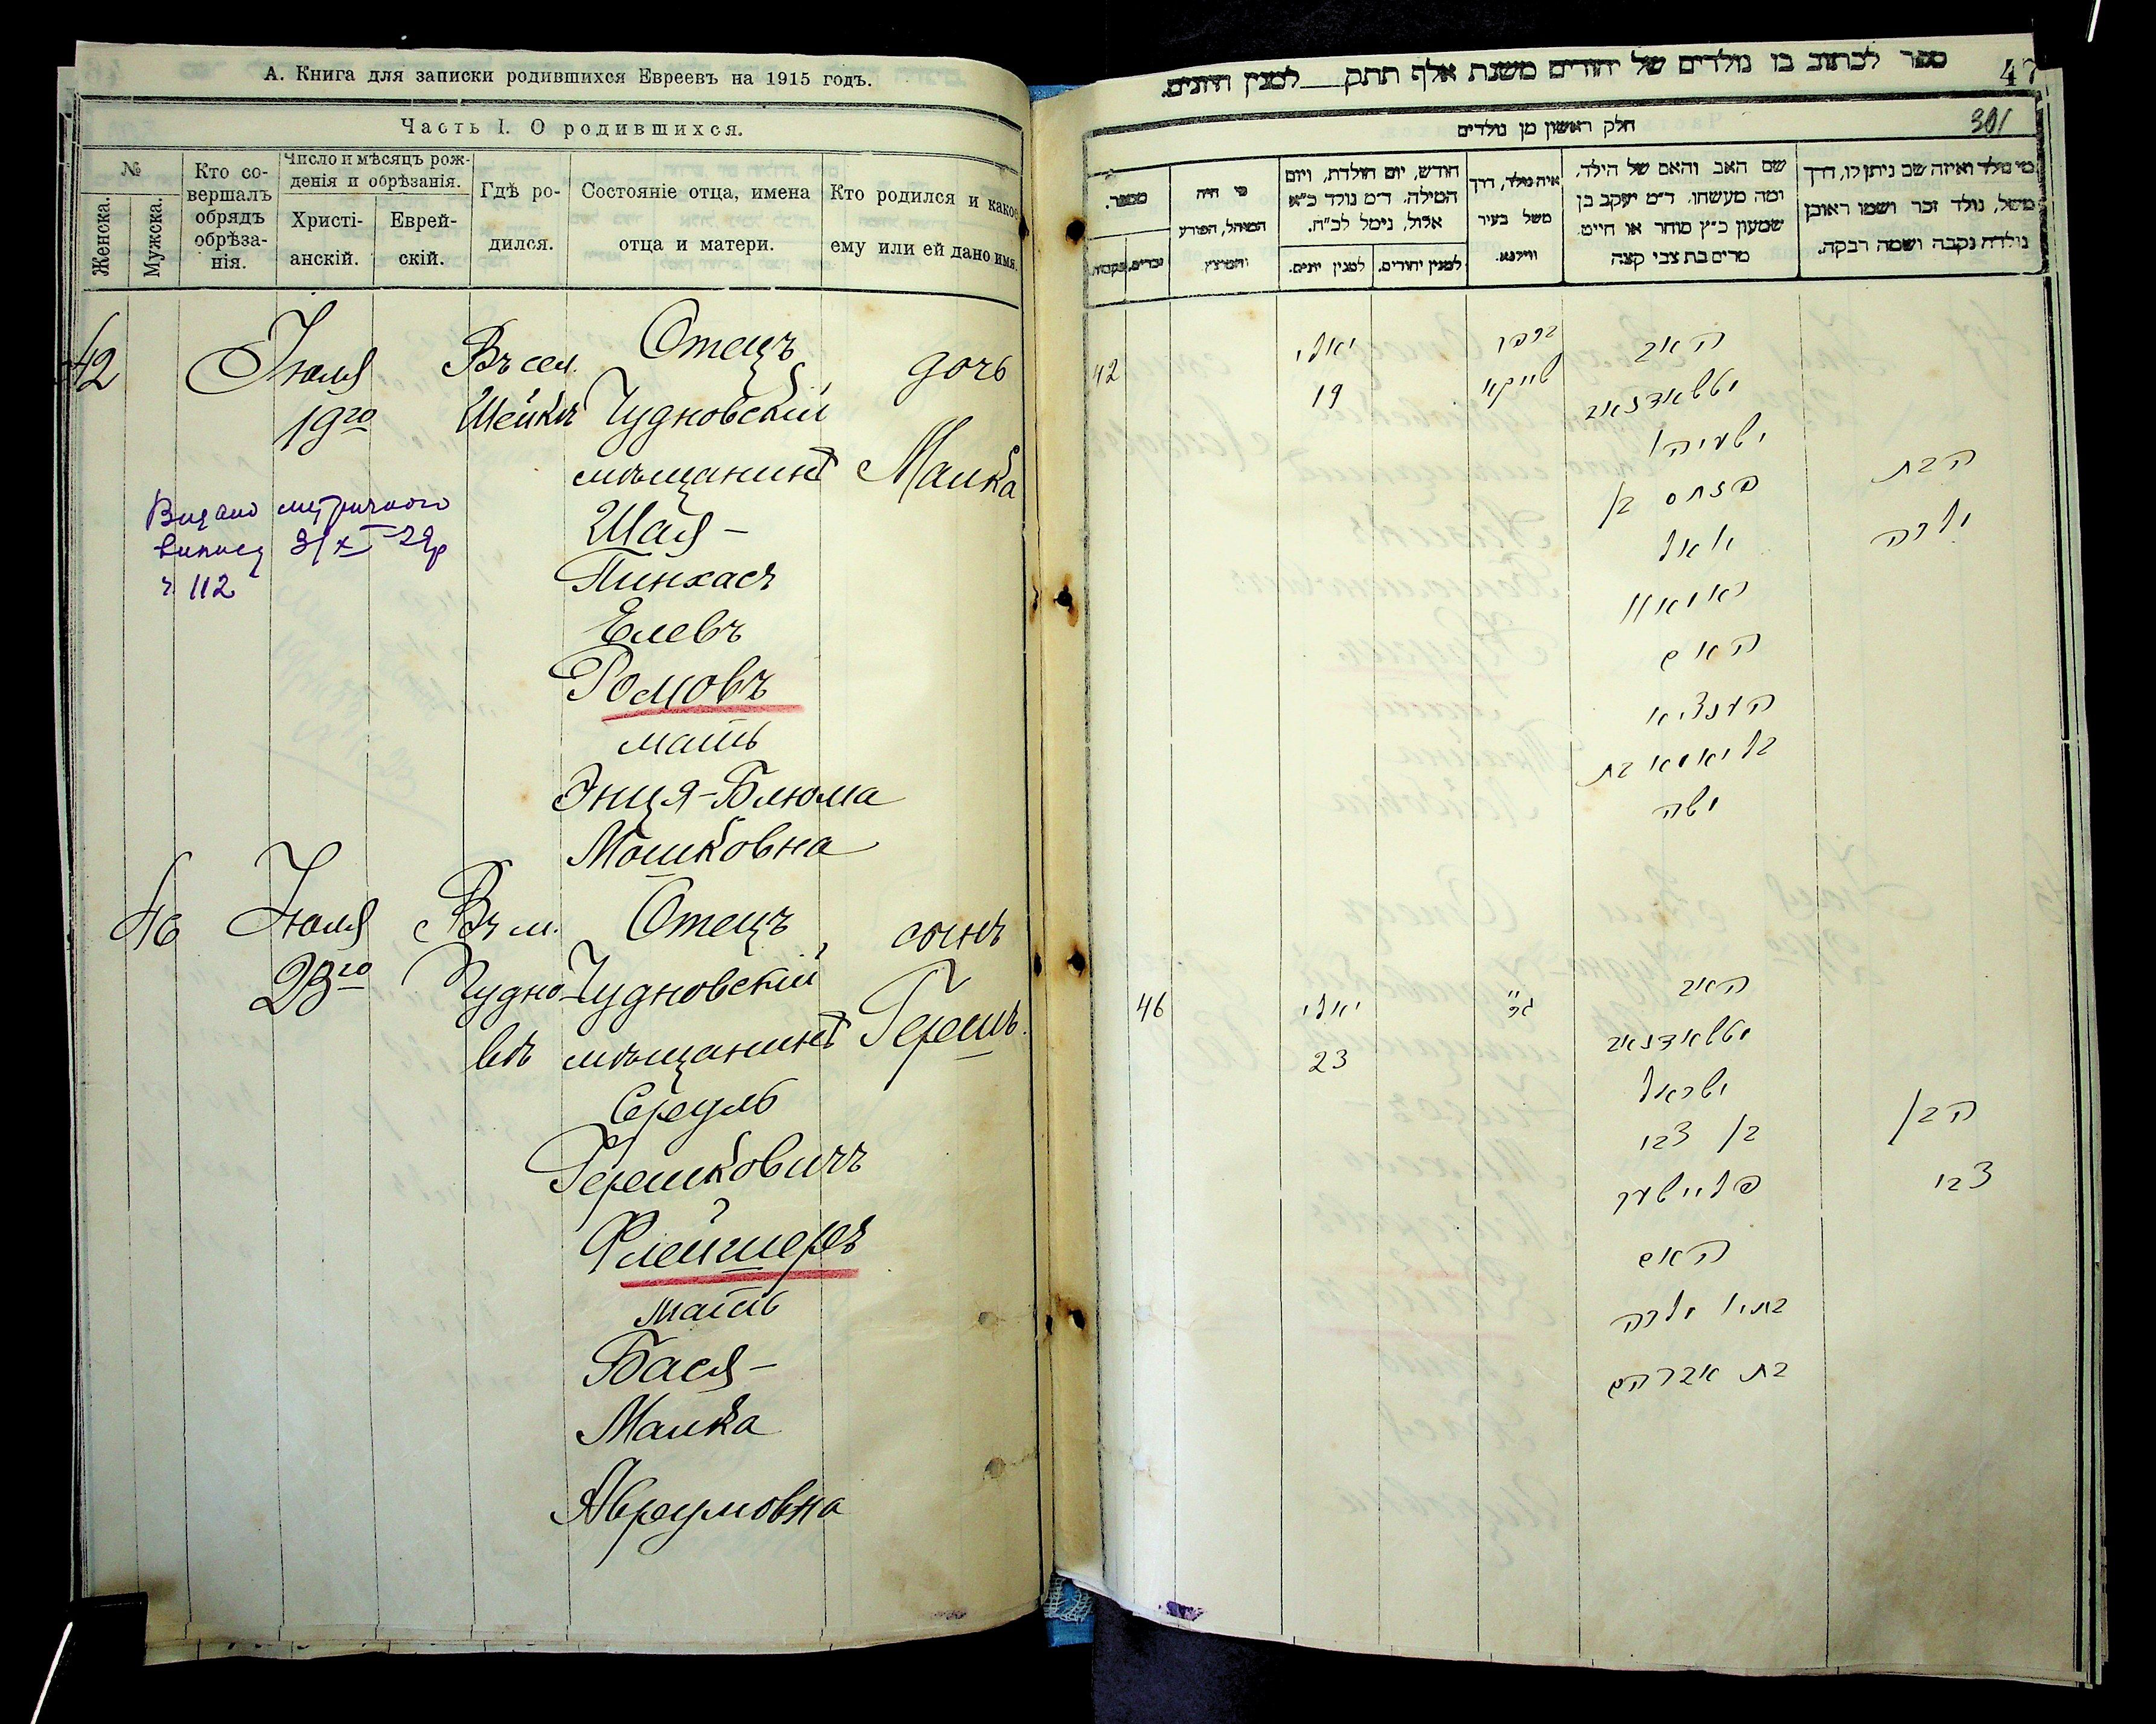 А. Книга для записки родившихся Евреевъ на 1915 годъ.
Часть I. О родившихся.
№
Женска.
Мужска.
Кто со-
вершалъ
обрядъ
обрѣза-
нія.
Число и мѣсяцъ рож-
денія и обрѣзанія.
Христі-
анскій.
Еврей-
скій.
Гдѣ ро-
дился.
Состояніе отца, имена
отца и матери.
Кто родился и какое
ему или ей дано имя.
42
Іюля
19го
Въ сел.
Шейкѣ
Отецъ
Чудновскій
мѣщанинъ
Шая-
Пинхасъ
Елевъ
мать
Энця-Блюма
Мошковна
дочь
Малка
метричного
31/X 29р
112
46
Іюля
23го
Въ м.
Чудно-
вѣ
Отецъ
Чудновскій
мѣщанинъ
Сруль
Гершковичъ
Флейшеръ
мать
Бася-
Малка
Аврумовна
сынъ
Гершъ.
ספר לכתוב בו נולדים של יהודים משנת אלף תתק למנין היונים.
47
301
חלק ראשון מן נולדים
מספר.
זכרים.
נקבות.
מי היה
המוהל, הפורע
והמוצץ
חודש, יום הולדת, ויום
המילה. ד״מ נולד כ״א
אלול, נימל לכ״ח.
למנין יונים.
למנין יהודים.
איה נולד, דרך
משל בעיר
ווילנא.
שם האב והאם של הילד,
ומה מעשהו. ד״מ יעקב בן
שמעון כ״ץ סוחר או חייט.
מרים בת צבי קצה
מי נולד ואיזה שם ניתן לו, דרך
משל, נולד זכר ושמו ראובן
נולדה נקבה ושמה רבקה.
42
יאלי
19
האב
ישעיה
פנחס בן
האם
בת
משה
הבת
מלכה
46
יאלי
23
האב
ישראל
בן צבי
פליישער
האם
מלכה
בת אברהם
הבן
צבי